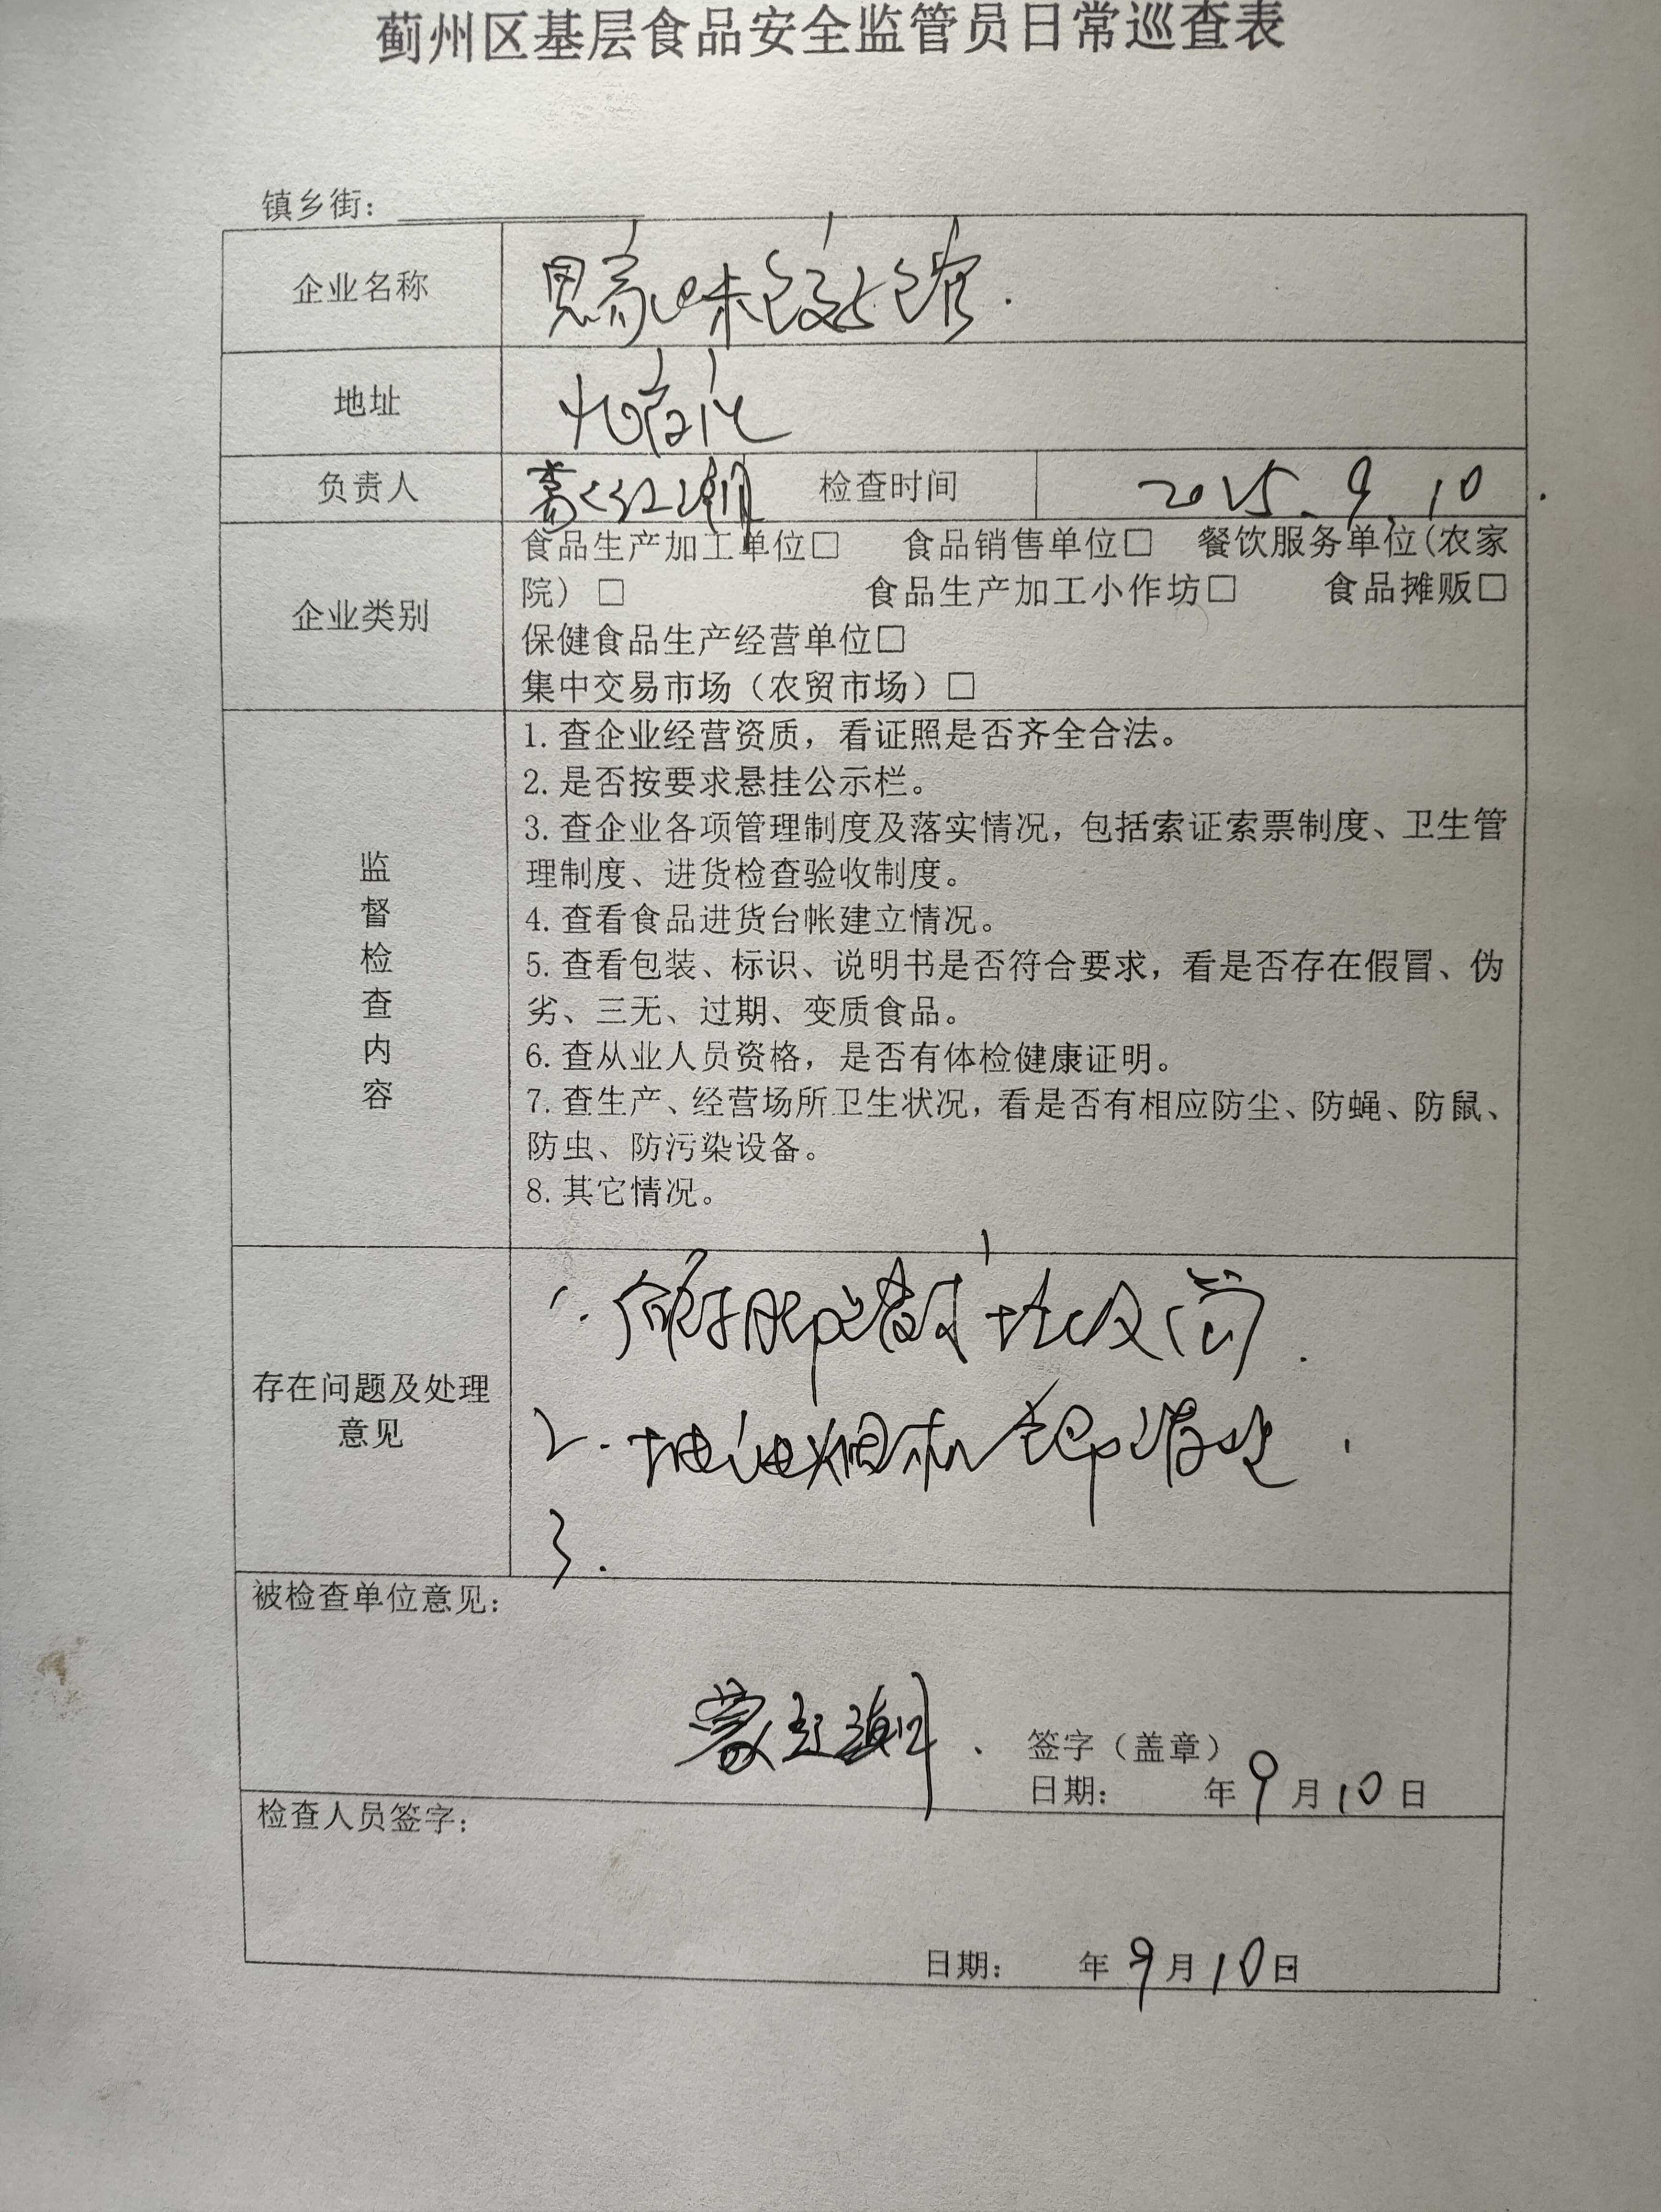 蓟州区基层食品安全监管员日常巡查表
镇乡街：
企业名称 思家味饺子馆.
地址
负责人 检查时间 2025.9.10.
企业类别
食品生产加工单位□ 食品销售单位□ 餐饮服务单位(农家
院）□ 食品生产加工小作坊□ 食品摊贩□
保健食品生产经营单位□
集中交易市场（农贸市场）□
监督检查内容
1. 查企业经营资质，看证照是否齐全合法。
2. 是否按要求悬挂公示栏。
3. 查企业各项管理制度及落实情况，包括索证索票制度、卫生管
理制度、进货检查验收制度。
4. 查看食品进货台帐建立情况。
5. 查看包装、标识、说明书是否符合要求，看是否存在假冒、伪
劣、三无、过期、变质食品。
6. 查从业人员资格，是否有体检健康证明。
7. 查生产、经营场所卫生状况，看是否有相应防尘、防蝇、防鼠、
防虫、防污染设备。
8. 其它情况。
存在问题及处理
意见
1. 垃圾
2. 抽油烟机
3.
被检查单位意见：
签字（盖章）
日期： 年9月10日
检查人员签字：
日期： 年9月10日